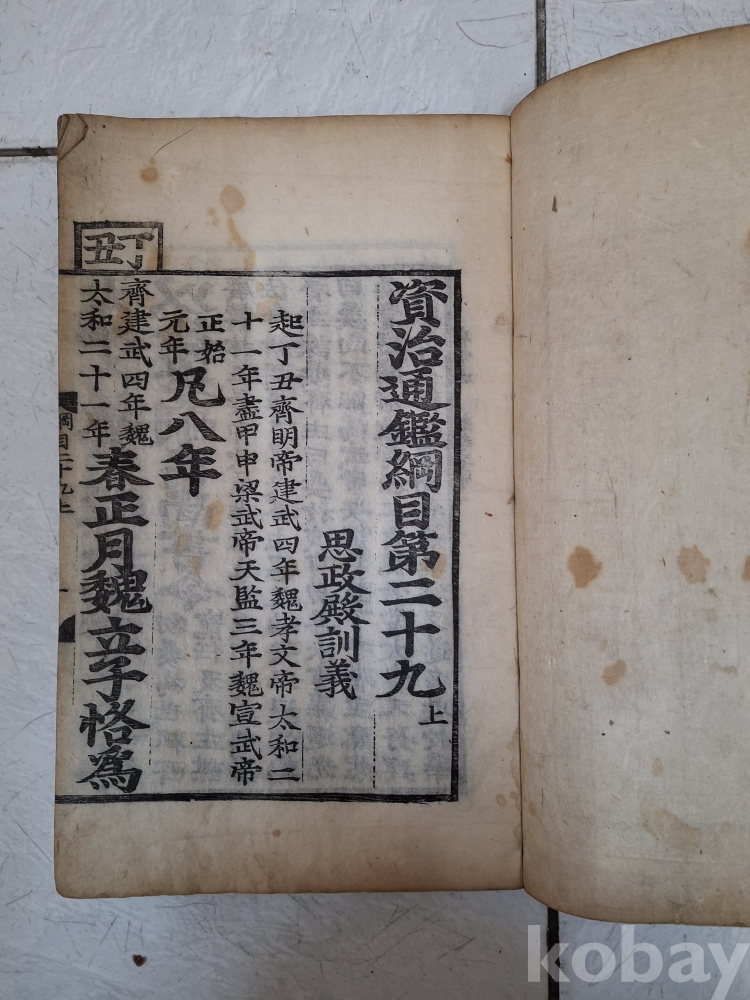 資治通鑑綱目第二十九上
思政殿訓義
起丁丑齊明帝建武四年魏孝文帝太和二
十一年盡甲申梁武帝天監三年魏宣武帝
正始
元年
凡八年
丁丑
齊建武四年魏
太和二十一年
春正月魏立子恪爲
綱目二十九上
kobay